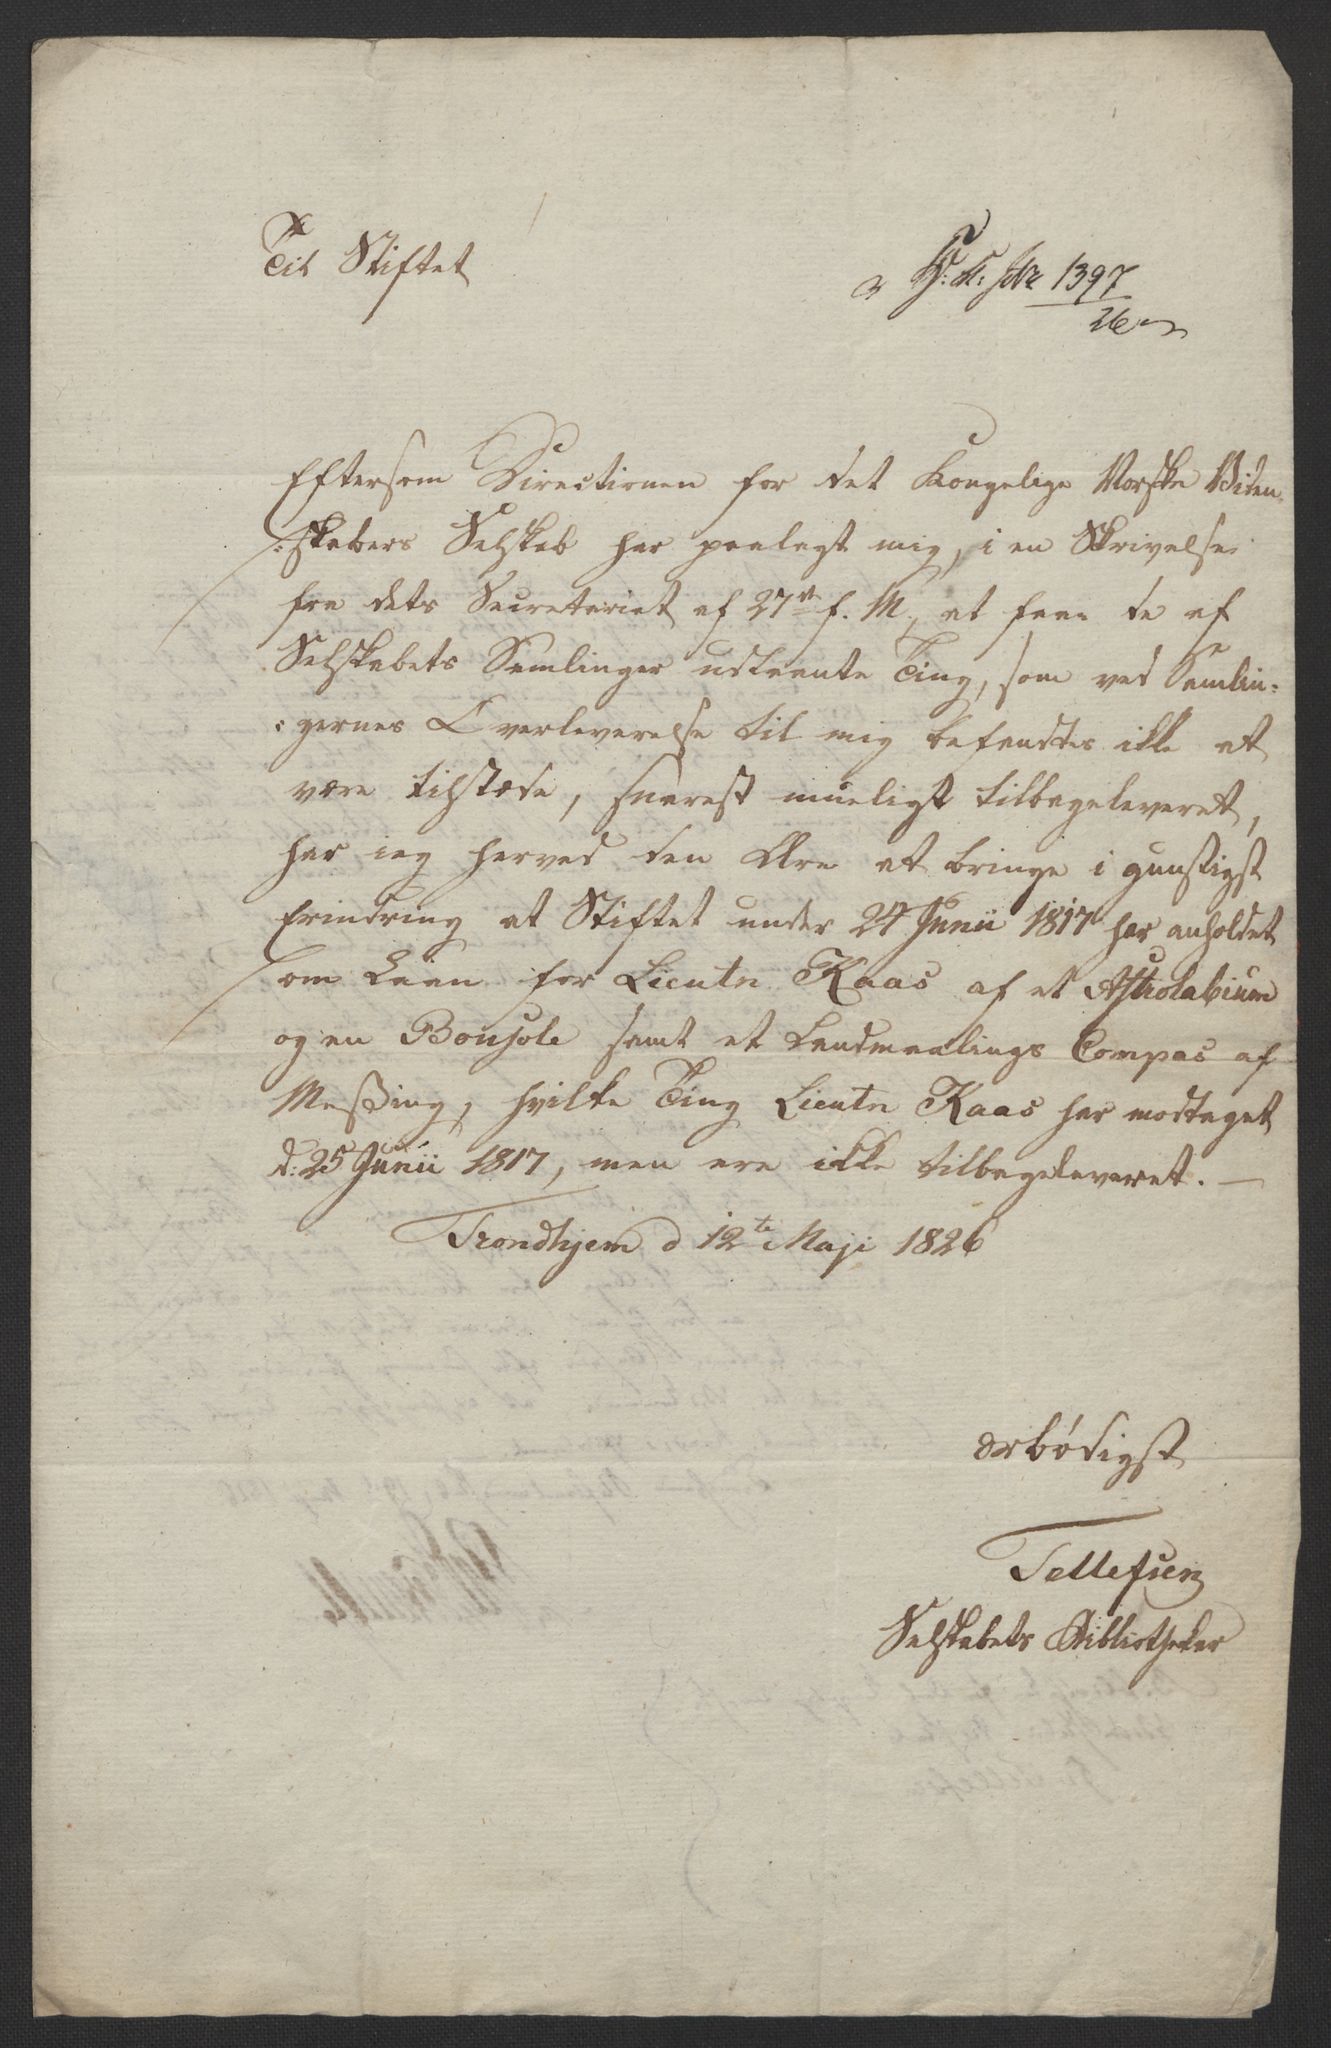 Til Stiftet
No 1397
26
Eftersom Directionen for det Kongelige Norske Viden-
:skabers Selskab har paalagt mig, i en Skrivelse
fra dets Secretariat af 27de f. M., at faae de af
Selskabets Samlinger udlaante Ting, som ved Samlin:
:gernes Overleverelse til mig befandtes ikke at
være tilstæde, snarest mueligt tilbageleveret,
har ieg herved den Ære at bringe i gunstigst
Erindring at Stiftet under 24 Junii 1817 har anholdet
om Laan for Lieutn Kaas af et Astrolabium
og en Bousole samt et Landmaalings Compas af
Meßing, hvilke Ting Lieutn Kaas har modtaget
d: 25 Junii 1817, men ere ikke tilbageleveret. —
Trondhjem d 12te Maji 1826
ærbödigst
Tellefsen
Selskabets Bibliothekar